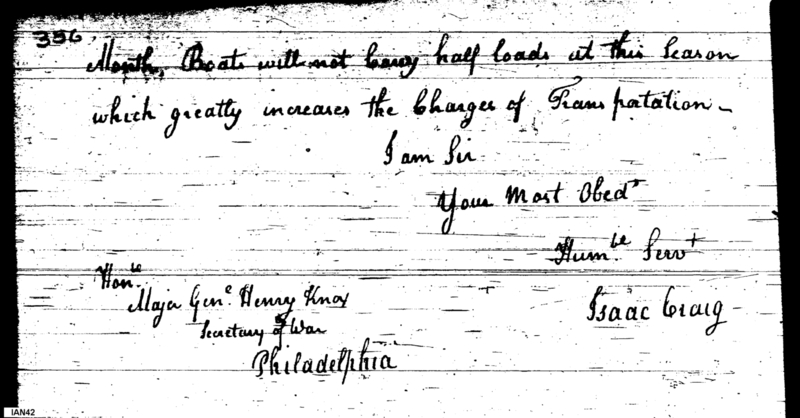 336
Month, Boats will not Carry half loads at this Season
which greatly increases the Charges of Transpatation -
I am Sir
Your Most Obedt
Humble Servt
Honle
Major Genl. Henry Knox
Isaac Craig
Secretary of War
Philadelphia
IAN42